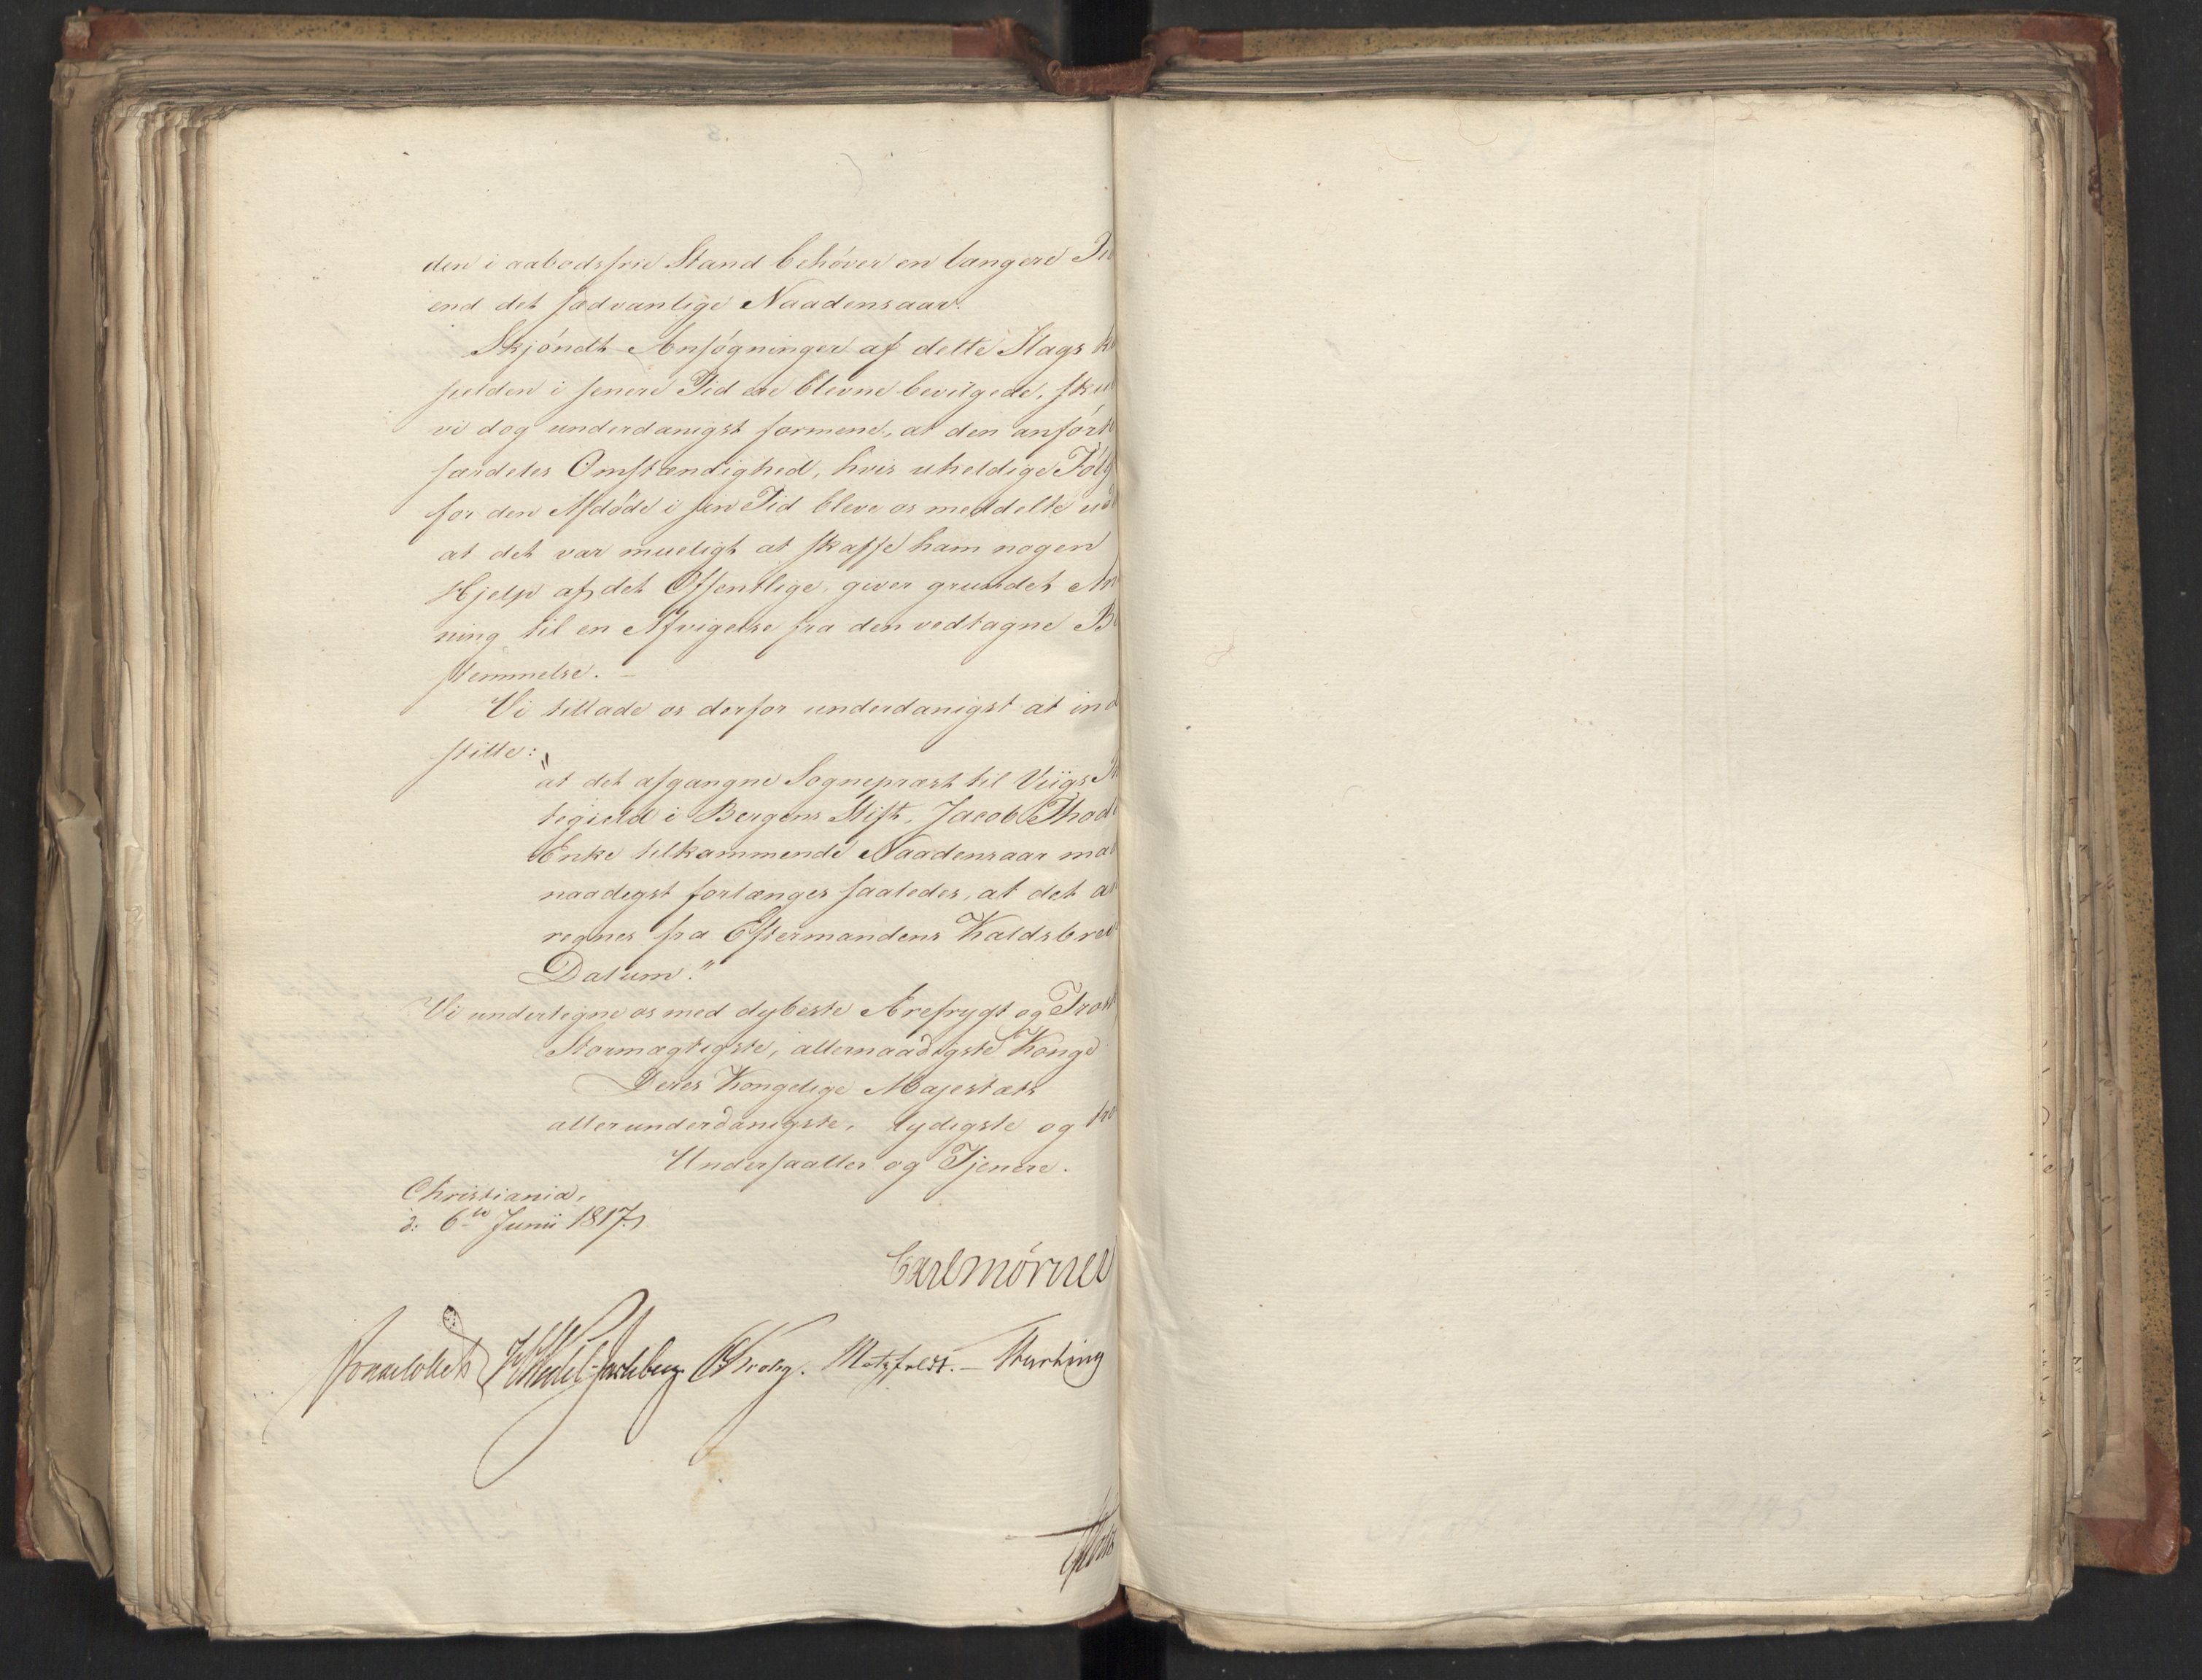 den i aabodsfrie Stand behøver en længere
end det sædvanlige Naadensaar.
Skjøndt Ansøgninger af dette Slags
sielden i senere Tid ere blevne bevilgede,
vi dog underdanigst formene, at den anført
særdeles Omstændighed, hvis uheldige Følg
for den Afdøde i sin Tid bleve os meddelte
at det var mueligt at skaffe ham nogen
Hjelp af det Offentlige, giver grundet An
ning til en Afvigelse fra den vedtagne Be
stemmelse. –
Vi tillade os derfor underdanigst at ind
stille:
"at det afgangne Sognepræst til Viigs
tegield i Bergens Stift, Jacob Thod
Enke tilkommende Naadensaar maa
naadigst forlænges saaledes, at det
regnes fra Eftermandens Kaldsbrev
Datum."
Vi undertegne os med dybeste Ærefrygt og Trosk
Stormægtigste, allernaadigste Konge
Deres Kongelige Majestæts
allerunderdanigste, lydigste og tro
Undersaatter og Tjenere.
Christiania,
d: 6te Junii 1817.
Carl Mörner
Sommerhielm HWedel-Jarlsberg Krohg. Motzfeldt. – Thurting